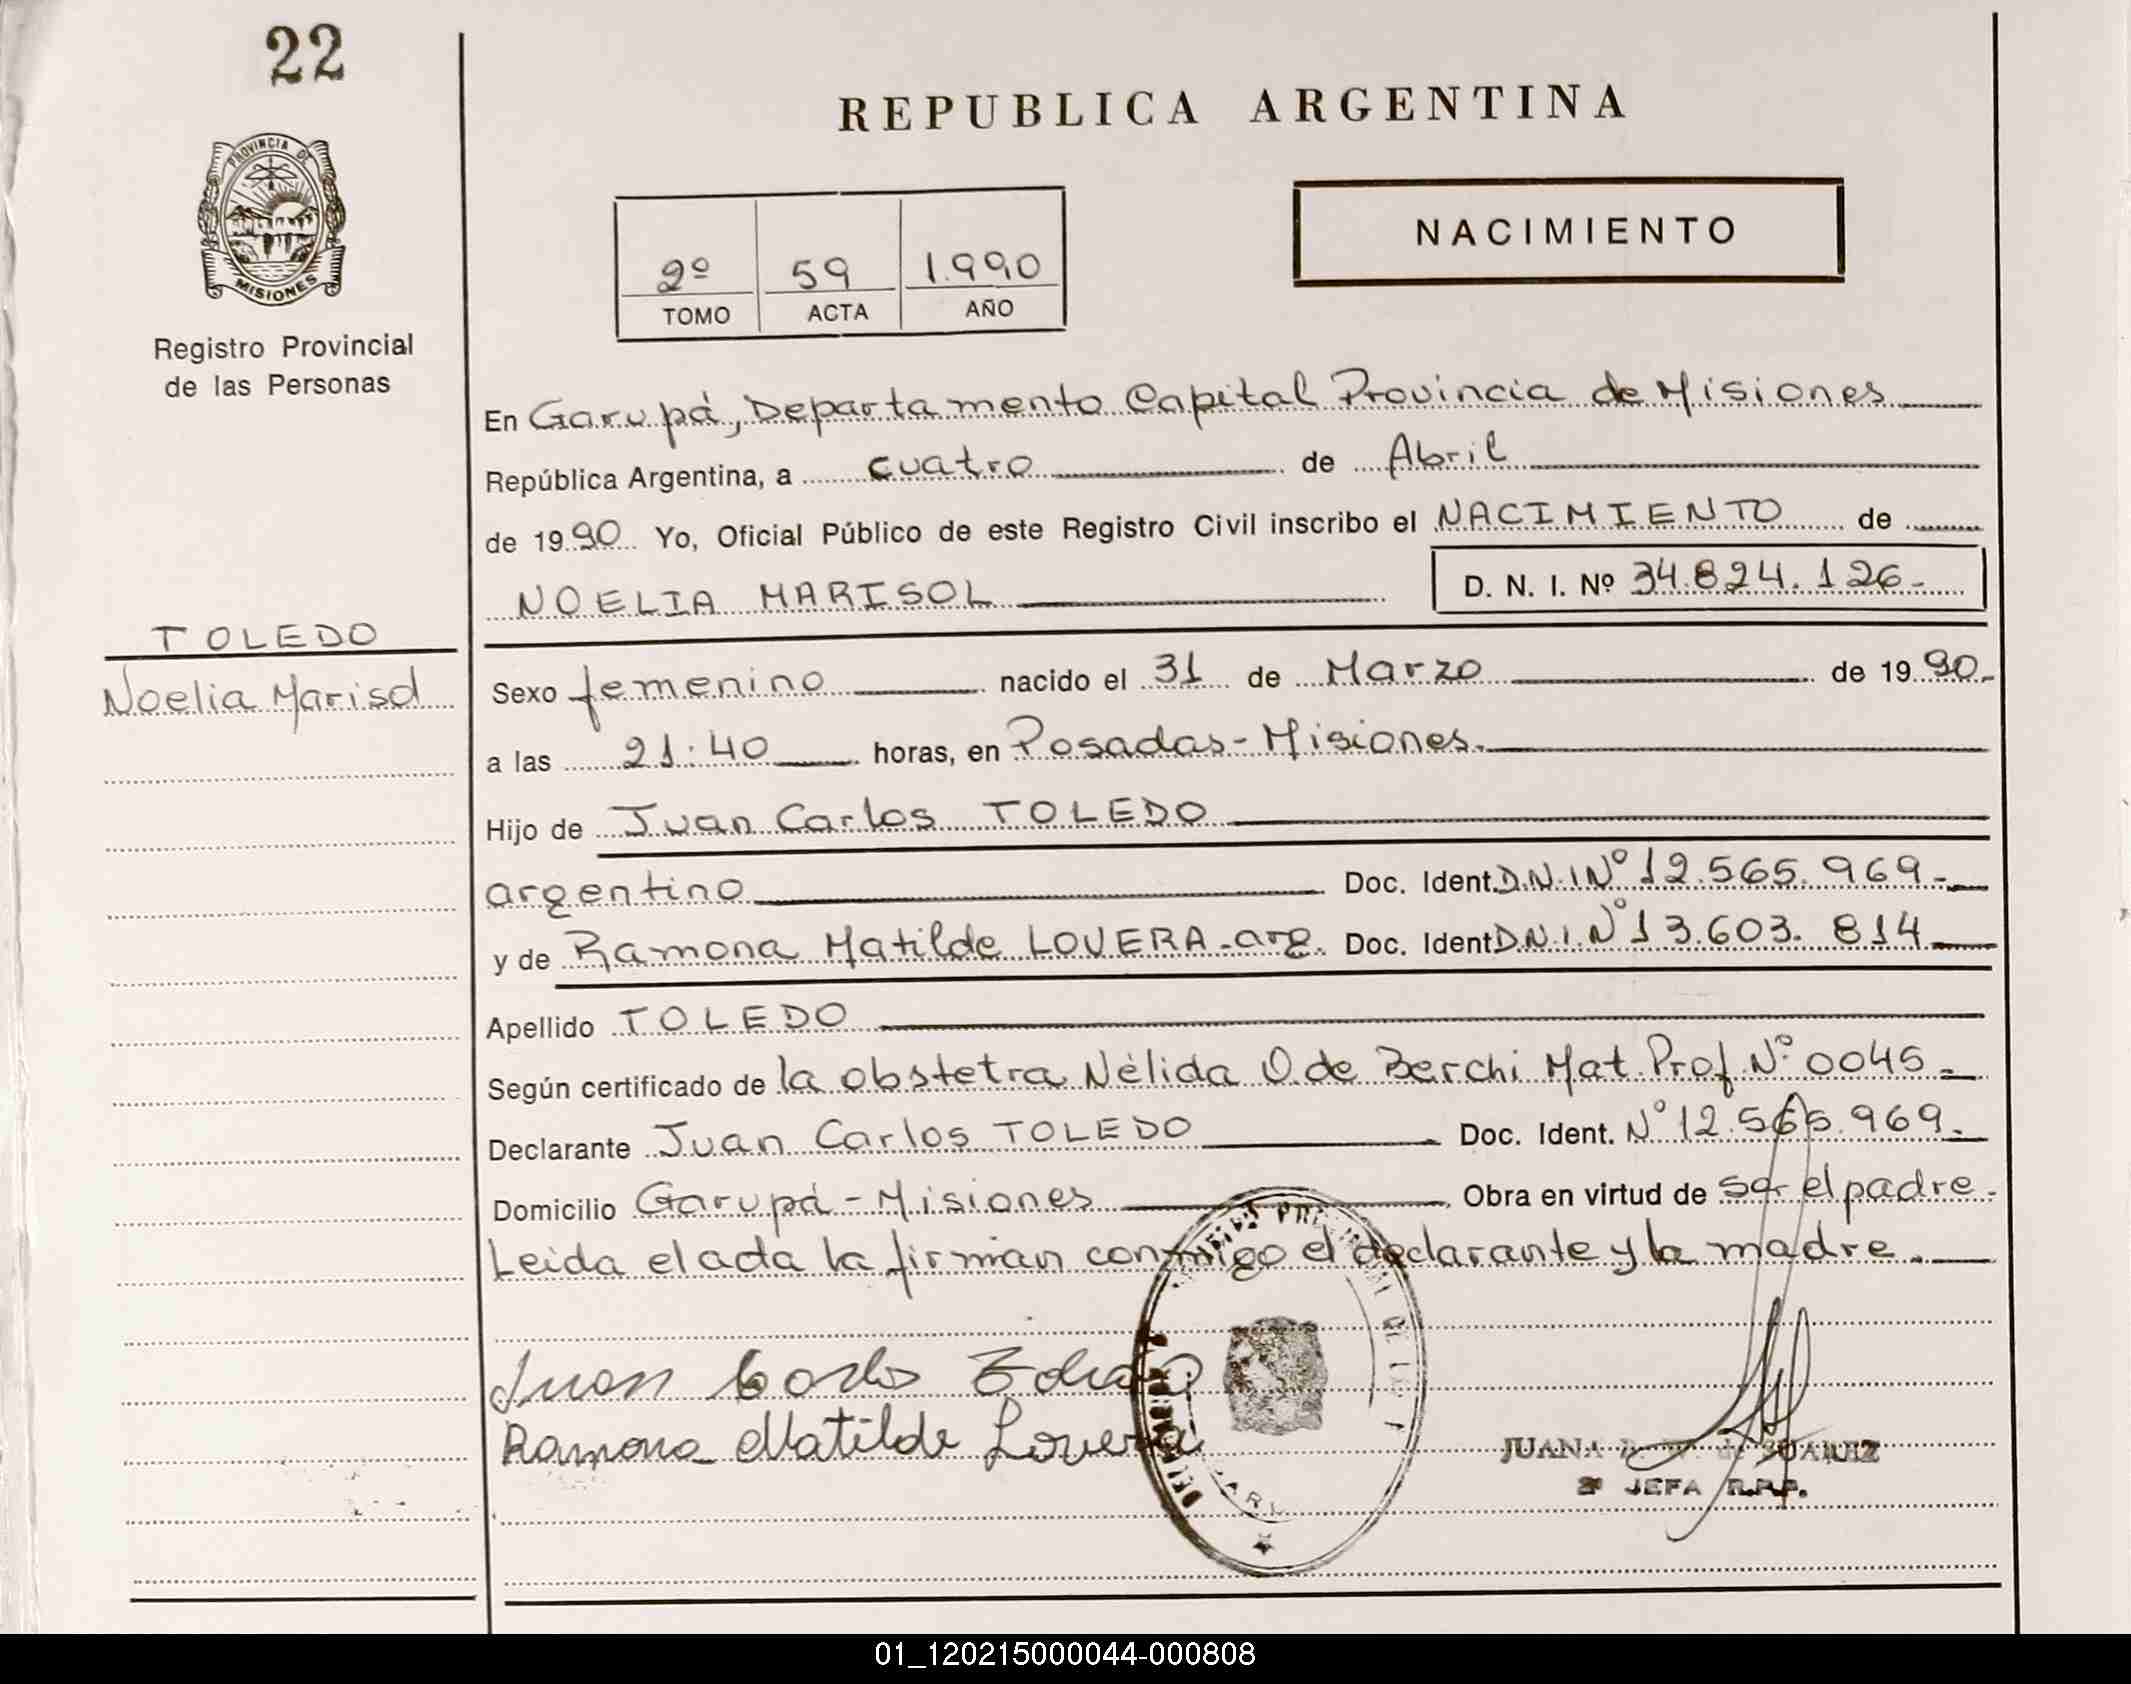 22
REPUBLICA ARGENTINA
PROVINCIA DE
MISIONES
Registro Provincial
de las Personas
NACIMIENTO
2º 59 1.990
TOMO ACTA AÑO
En Garupá, Departamento Capital Provincia de Misiones
República Argentina, a cuatro de Abril
de 1990 Yo, Oficial Público de este Registro Civil inscribo el NACIMIENTO de
NOELIA MARISOL D. N. I. Nº 34.824.126-
TOLEDO
Noelia Marisol
Sexo femenino nacido el 31 de Marzo de 1990-
a las 21:40 horas, en Posadas-Misiones.
Hijo de Juan Carlos TOLEDO
argentino Doc. Ident. D.N.I Nº 12.565.969-
y de Ramona Matilde LOVERA-arg. Doc. Ident D.N.I. Nº 13.603.814
Apellido TOLEDO
Según certificado de la obstetra Nélida O. de Berchi Mat. Prof. Nº 0045-
Declarante Juan Carlos TOLEDO Doc. Ident. Nº 12.565.969.
Domicilio Garupá-Misiones Obra en virtud de ser el padre-
Leida el acta la firman conmigo el declarante y la madre.
Juan Carlos Toledo
Ramona Matilde Lovera
JUANA de SUAREZ
JEFA R.P.P.
01_120215000044-000808